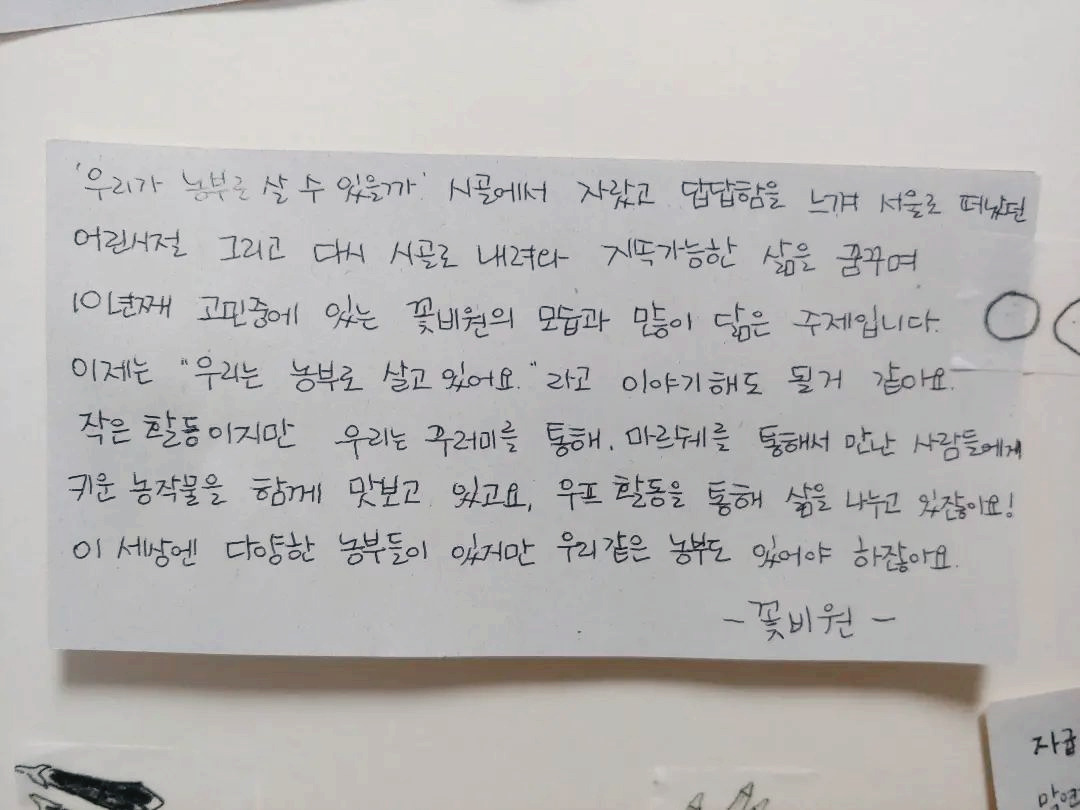 '우리가 농부로 살 수 있을까' 시골에서 자랐고 답답함을 느껴 서울로 떠났던
어린시절 그리고 다시 시골로 내려와 지속가능한 삶을 꿈꾸며
10년째 고민중에 있는 꽃비원의 모습과 많이 닮은 주제입니다.
이제는 "우리는 농부로 살고 있어요." 라고 이야기해도 될거 같아요.
작은 활동이지만 우리는 꾸러미를 통해, 마르쉐를 통해서 만난 사람들에게
키운 농작물을 함께 맛보고 있고요, 우프 활동을 통해 삶을 나누고 있잖아요!
이 세상엔 다양한 농부들이 있지만 우리같은 농부도 있어야 하잖아요.
- 꽃비원 -
자급
막연